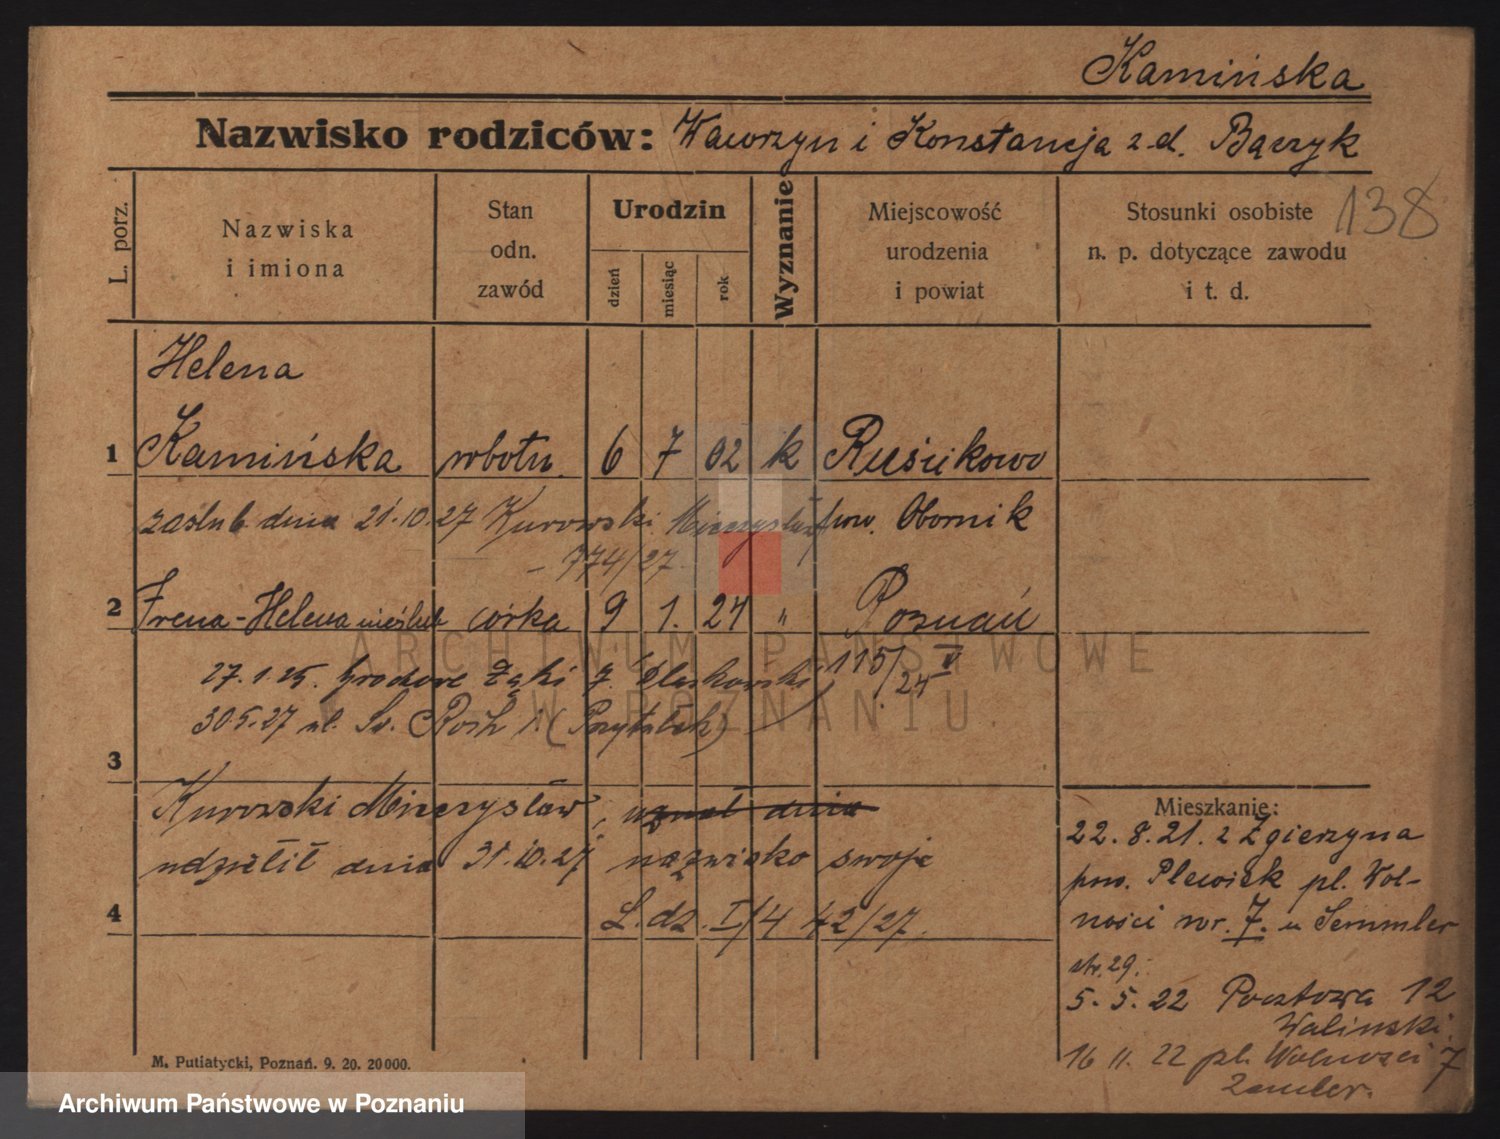 Kamińska
Nazwisko rodziców: Wawrzyn i Konstancja z d. Bączyk
138
L. porz.
Nazwiska i imiona
Stan odn. zawód
Urodzin
dzień
miesiąc
rok
Wyznanie
Miejscowość urodzenia i powiat
Stosunki osobiste n. p. dotyczące zawodu i t. d.
Helena
1 Kamińska robotn. 6 7 02 k
zaślub. dnia 21.10.27 Kurowski Mieczysław pow. Obornik
774/27
2 Irena-Helena nieślub córka 9 1. 24 " Poznań
27.1.25. 115/24 V
30.5.27 ul. Św. Roch
3
Kurowski Mieczysław, uznał dnia
udzielił dnia 31.10.27 nazwisko swoje
4 L. dz. I/4 42/27.
Mieszkanie:
22.8.21. z Zgierzyna
pow. pl. Wol-
ności nr. 7. u Semmler
str. 29.
5.5.22 Pocztowa 12
Walinski
16 11. 22 pl. Wolnosci 7
Zemler.
M. Putiatycki, Poznań. 9. 20. 20000.
ARCHIWUM PAŃSTWOWE
W POZNANIU
Archiwum Państwowe w Poznaniu